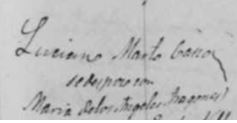 Luciano Marto Cano
se desposo con
Maria de los Angeles Aragones